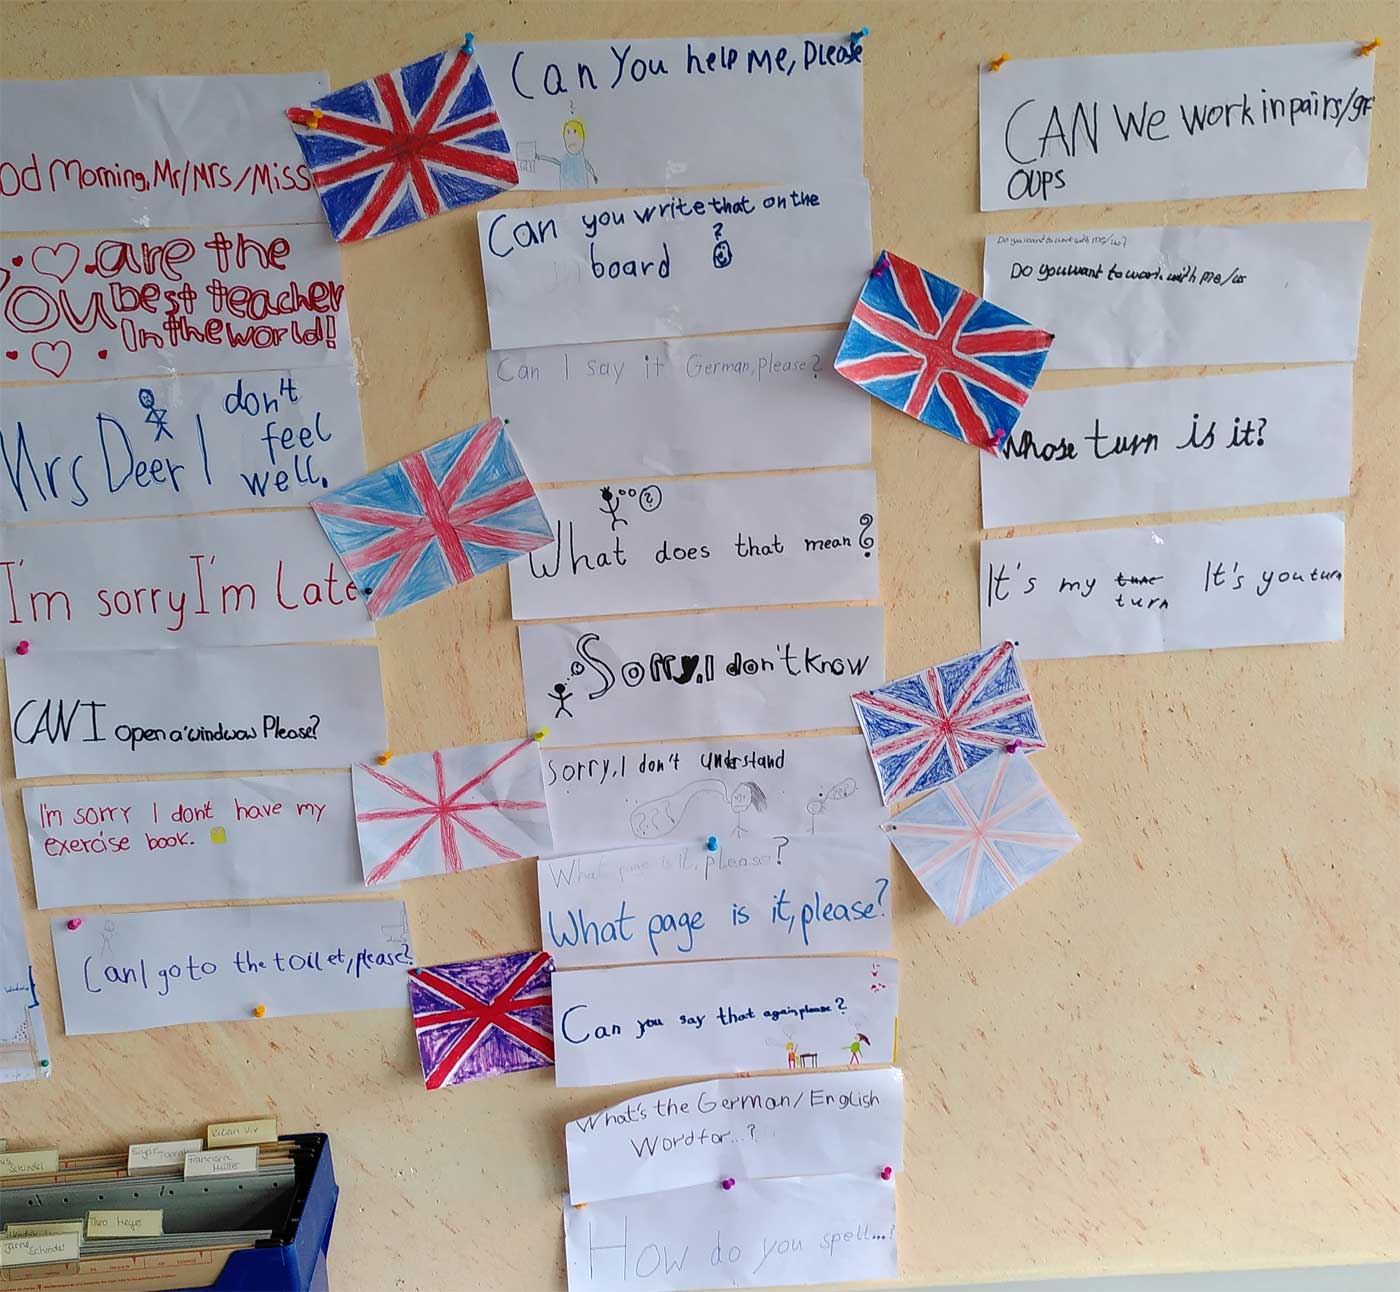 od Morning, Mr/Mrs/Miss
You are the
best teacher
In the world!
Mrs Deer I don't
feel
well.
I'm sorry I'm Late
CAN I open a windwow Please?
I'm sorry I don't have my
exercise book.
Can I go to the toilet, please?
Can You help Me, Please
Can you write that on the
board ?
Can I say it German, please?
What does that mean?
Sorry, I don't know
Sorry, I don't understand
???
What page is it, please?
What page is it, please?
Can you say that again please?
What's the German/English
Word for...?
How do you spell...?
CAN We work in pairs/gr
oups
Do you want to work with me/us?
Do you want to work with me/us
Whose turn is it?
It's my tune It's you turn
turn
Kilian Vix
Franziska
Müller
Schindel
Theo Meyer
Arne
Schindel